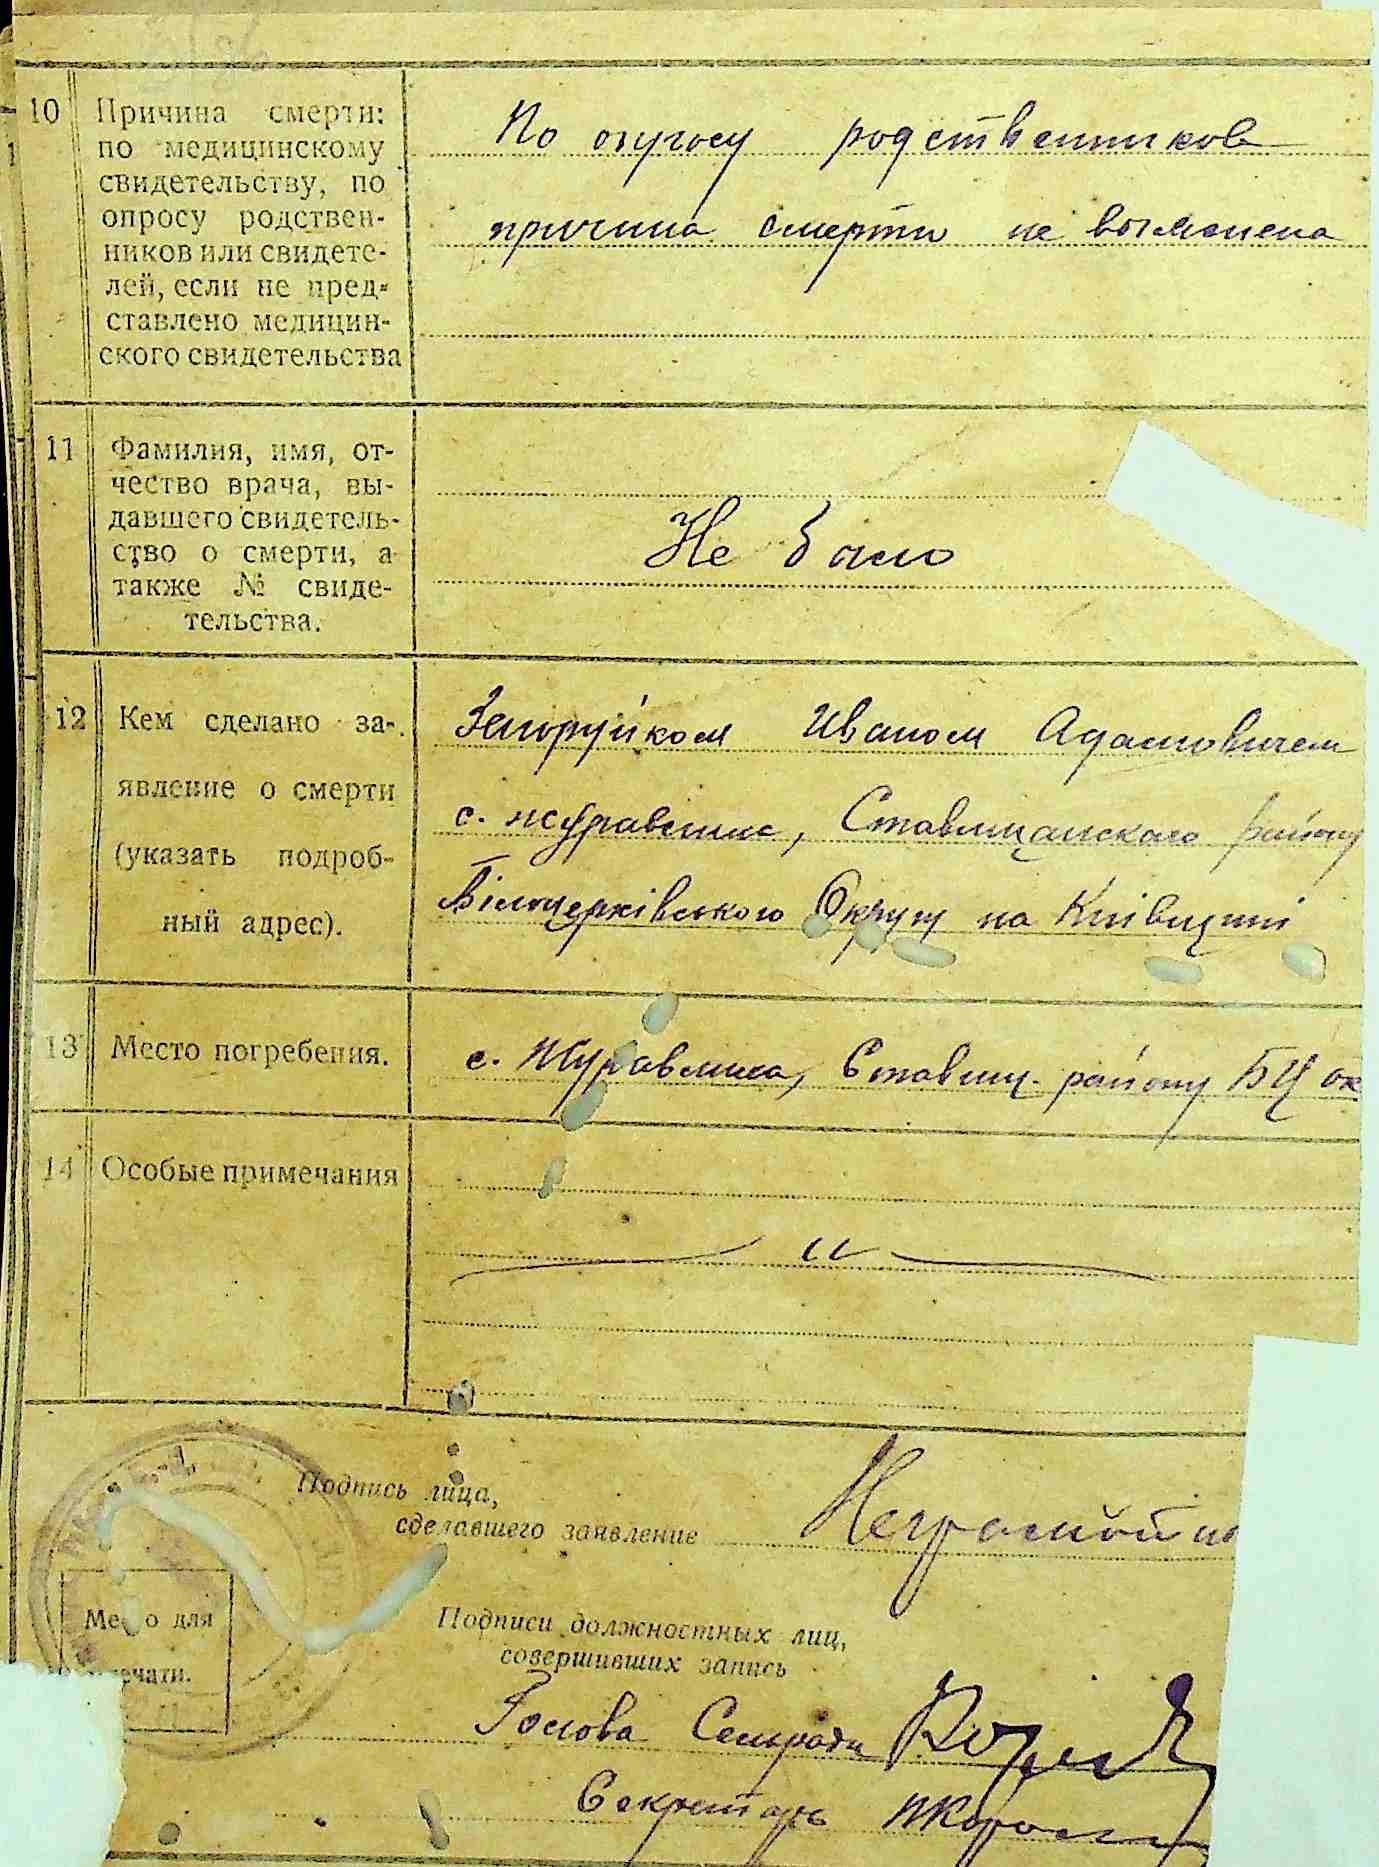 10 Причина смерти:
по медицинскому
свидетельству, по
опросу родствен-
ников или свидете-
лей, если не пред-
ставлено медицин-
ского свидетельства
По опросу родственников
причина смерти не выяснена
11 Фамилия, имя, от-
чество врача, вы-
давшего свидетель-
ство о смерти, а
также № свиде-
тельства.
Не было
12 Кем сделано за-
явление о смерти
(указать подроб-
ный адрес).
Иваном Адамовичем
с. Журавлиха, Ставищанского району
Білоцерківського Округу на Київщині
13 Место погребения.
с. Журавлиха, Ставищ. району БЦ ок
14 Особые примечания
Подпись лица,
сделавшего заявление
Неграмотн
Место для
печати.
Подписи должностных лиц,
совершивших запись
Голова Сельради
Секретарь